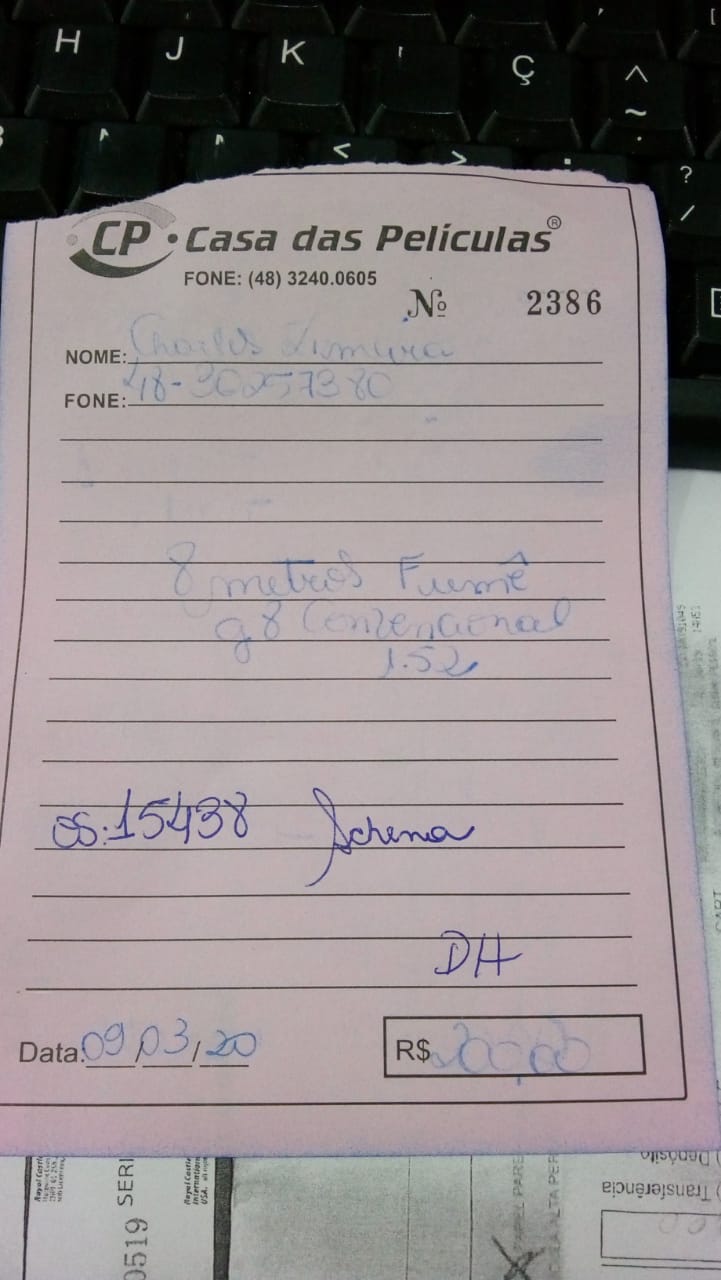 H J K Ç ^
~
< > . ?
/
CP • Casa das Películas®
FONE: (48) 3240.0605
Nº 2386
NOME: Charles
FONE: 48-30257380
8 metros Fumê
g8 Convencional
1.52
OS:15438 Schena
DH
Data: 09/03/20 R$ 200,00
Depósito
Transferência
0519 SERI